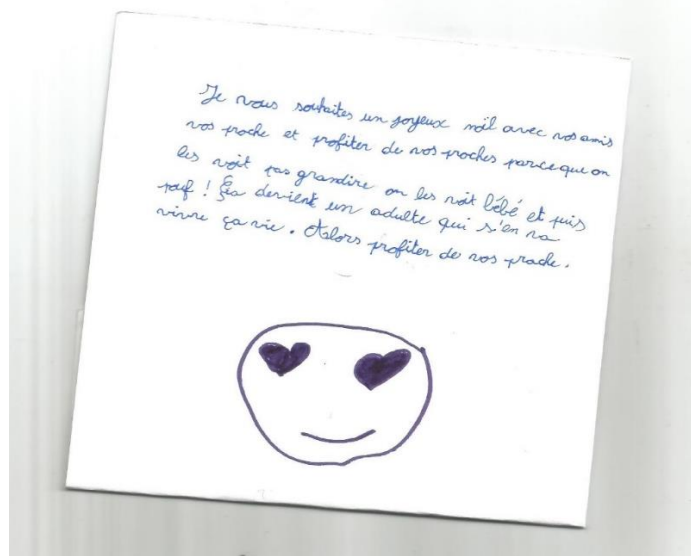 Je vous souhaites un joyeux nöil avec vos amis
vos proche et profiter de vos proches parceque on
les voit pas grandire on les voit bébé et puis
pouf ! Ça devient un adulte qui s'en va
vivre ça vie. Alors profiter de vos proche.